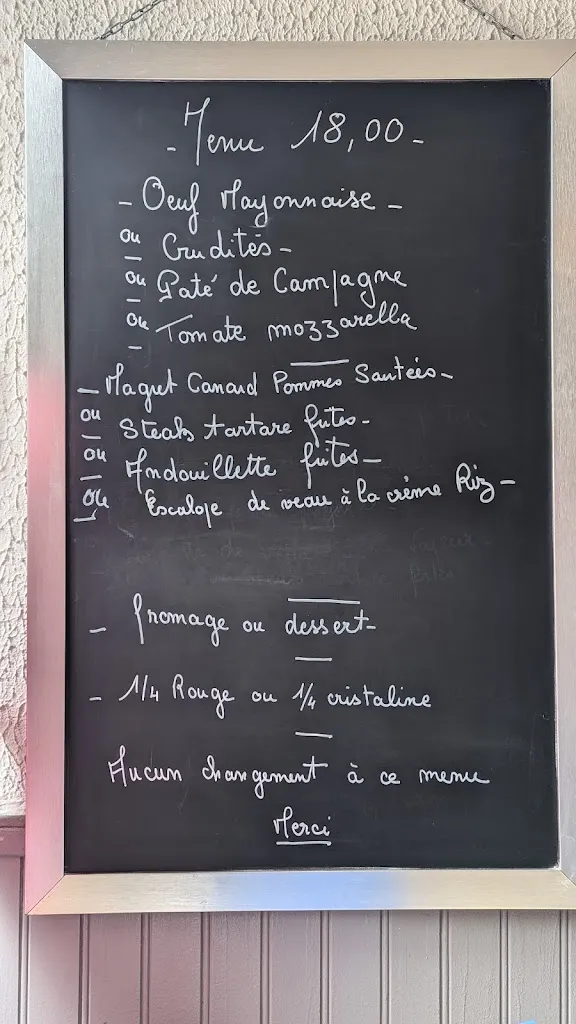 - Menu 18,00 -
- Oeuf Mayonnaise -
ou Crudités -
ou Paté de Campagne
ou Tomate mozzarella
- Magret Canard Pommes Sautées -
ou Steak tartare frites -
ou Andouillette frites -
ou Escalope de veau à la crème Riz -
- fromage ou dessert -
- 1/4 Rouge ou 1/4 cristaline
Aucun changement à ce menu
Merci